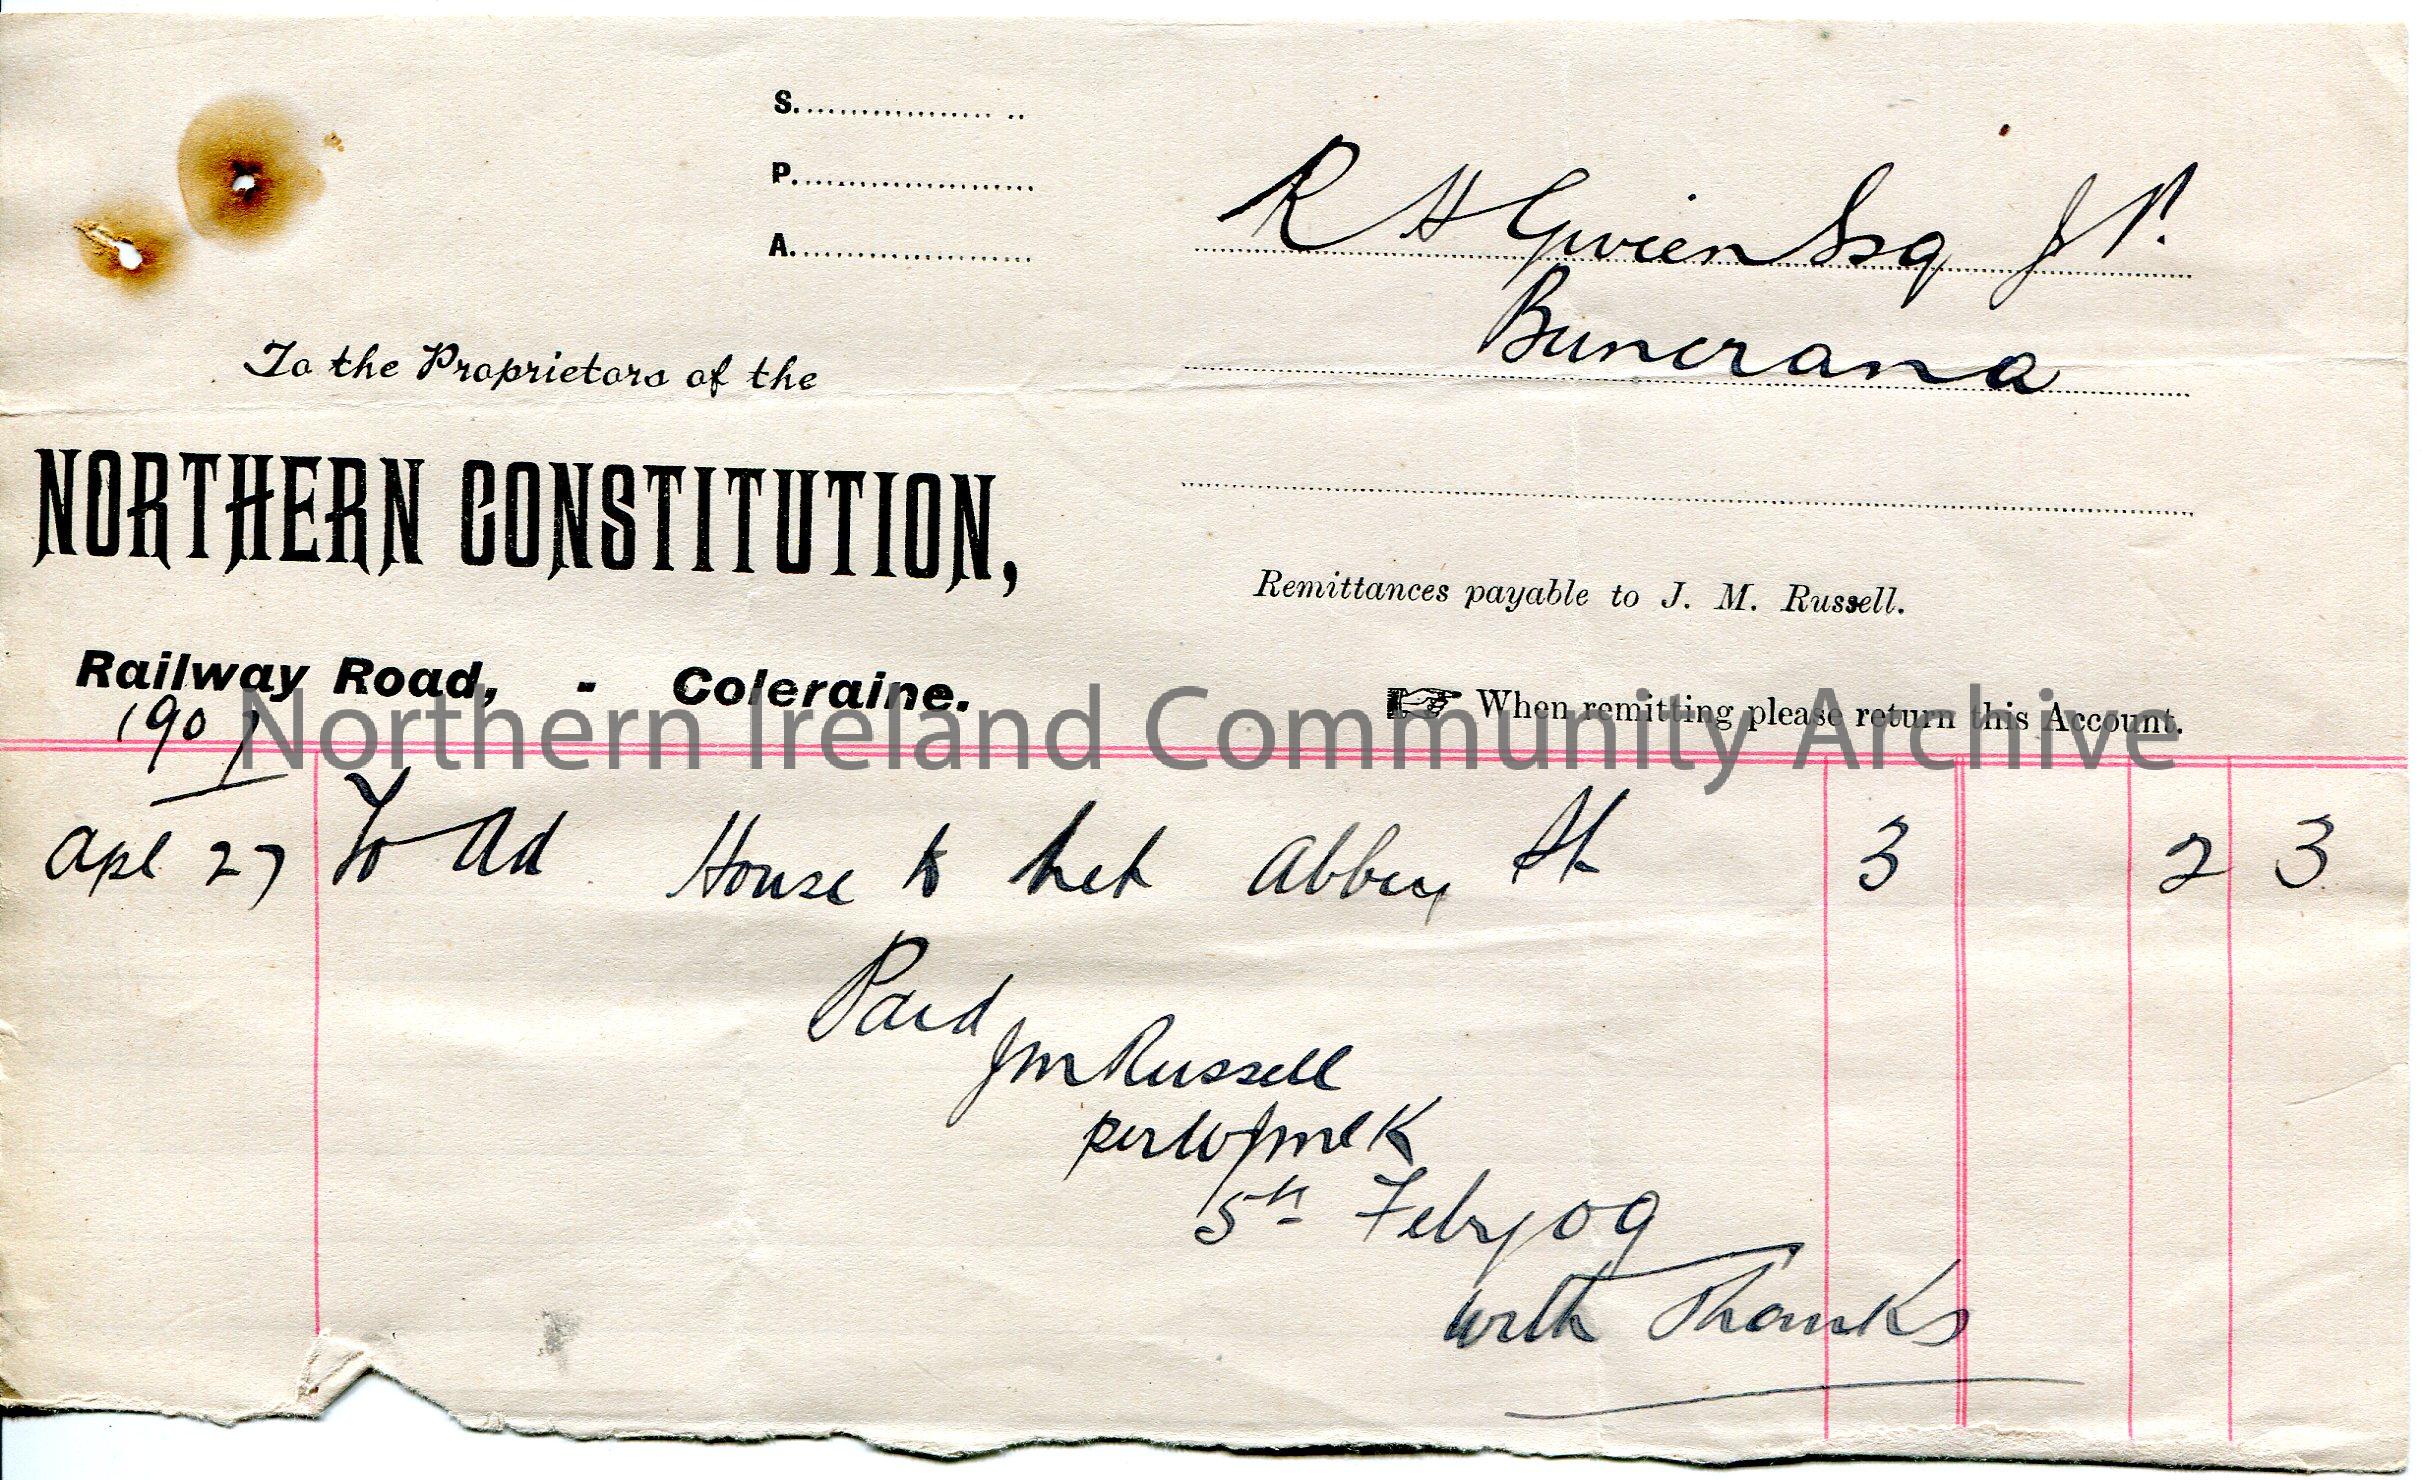 S.
P.
A.
R H Gwien Esq J P.
Buncrana
To the Proprietors of the
NORTHERN CONSTITUTION,
Railway Road, - Coleraine.
Remittances payable to J. M. Russell.
When remitting please return this Account.
Northern Ireland Community Archive
1907
Apl 27 To Ad House to Let Abbey St 3 2 3
Paid
JM Russell
per
5th Feby 09
with Thanks